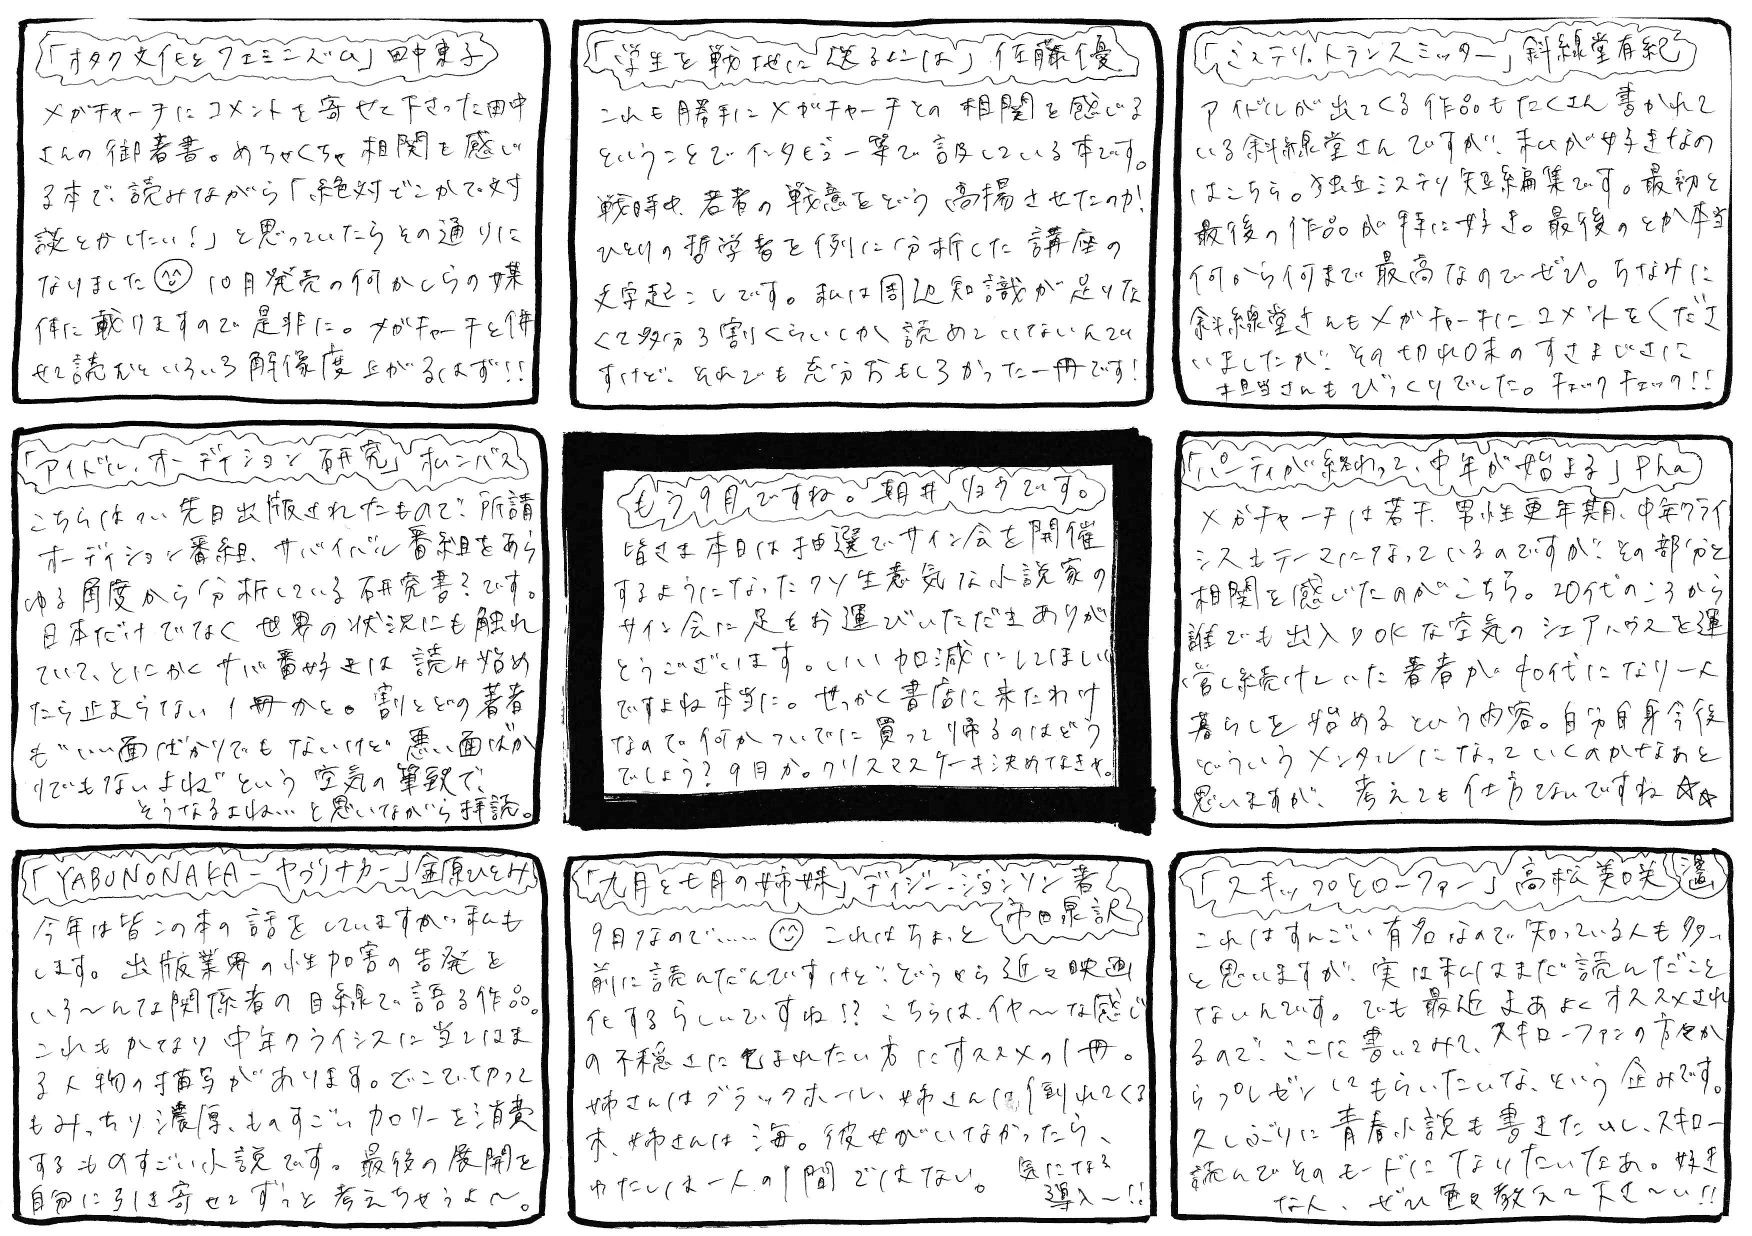 「オタク文化とフェミニズム」田中東子
メガチャーチにコメントを寄せて下さった田中
さんの御著書。めちゃくちゃ相関を感じ
る本で、読みながら「絶対どこかで対
談とかしたい！」と思っていたらその通りに
なりました 10月発売の何かしらの媒
体に載りますので是非に。メガチャーチと併
せて読むといろいろ解像度上がるはず！！
「学生を戦地に送るには」佐藤優
これも勝手にメガチャーチとの相関を感じる
ということでインタビュー等で話している本です。
戦時中、若者の戦意をどう高揚させたのか！
ひとりの哲学者を例に分析した講座の
文字起こしです。私は周辺知識が足りな
くて多分3割くらいしか読めていないんで
すけど、それでも充分おもしろかった一冊です！
「ミステリ・トランスミッター」斜線堂有紀
アイドルが出てくる作品もたくさん書かれて
いる斜線堂さんですが、私が好きなの
はこちら。独立ミステリ短編集です。最初と
最後の作品が特に好き。最後のとか本当
何から何まで最高なのでぜひ。ちなみに
斜線堂さんもメガチャーチにコメントをくださ
いましたが、その切れ味のすさまじさに
担当さんもびっくりでした。チェックチェック！！
「アイドル・オーディション研究」オムニバス
こちらはつい先日出版されたもので、所謂
オーディション番組、サバイバル番組をあら
ゆる角度から分析している研究書？です。
日本だけでなく世界の状況にも触れ
ていて、とにかくサバ番好きは読み始め
たら止まらない1冊かと。割とどの著者
も"いい面ばかりでもないけど悪い面ばか
りでもないよね"という空気の筆致で、
そうなるよね…と思いながら拝読。
もう9月ですね。朝井リョウです。
皆さま本日は抽選でサイン会を開催
するようになったクソ生意気な小説家の
サイン会に足をお運びいただきありが
とうございます。いい加減にしてほしい
ですよね本当に。せっかく書店に来たわけ
なので何かついでに買って帰るのはどう
でしょう？9月か。クリスマスケーキ決めなきゃ。
「パーティが終わって、中年が始まる」pha
メガチャーチは若干、男性更年期、中年クライ
シスもテーマになっているのですが、その部分と
相関を感じたのがこちら。20代のころから
誰でも出入りOKな空気のシェアハウスを運
営し続けていた著者が40代になり一人
暮らしを始めるという内容。自分自身今後
どういうメンタルになっていくのかなぁと
思いますが、考えても仕方ないですね☆☆
「YABUNONAKA－ヤブノナカ－」金原ひとみ
今年は皆この本の話をしていますが、私も
します。出版業界の性加害の告発を
いろ〜んな関係者の目線で語る作品。
これもかなり中年クライシスに当てはま
る人物の描写があります。どこで切って
もみっちり濃厚、ものすごいカロリーを消費
するものすごい小説です。最後の展開を
自分に引き寄せてずっと考えちゃうよ〜。
「九月と七月の姉妹」デイジー・ジョンソン著
市田泉訳
9月なので…… これはちょっと
前に読んだんですけど、どうやら近々映画
化するらしいですね！？こちらは、イヤ〜な感じ
の不穏さに包まれたい方にオススメの1冊。
姉さんはブラックホール、姉さんは倒れてくる
木、姉さんは海。彼女がいなかったら、
わたしは一人の人間ではない。気になる
導入〜！！
「スキップとローファー」高松美咲 漫画
これはすんごい有名なので知っている人も多い
と思いますが、実は私はまだ読んだこと
ないんです。でも最近まあよくオススメされ
るので、ここに書いてみて、スキローファンの方々か
らプレゼンしてもらいたいな、という企みです。
久しぶりに青春小説も書きたいし、スキロー
読んでそのモードになりたいなぁ。好き
な人、ぜひ色々教えて下さ〜い！！